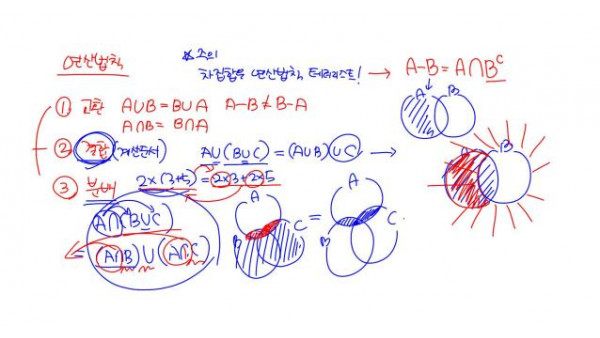 연산법칙
☆주의
차집합은 연산법칙 테러리스트! → A-B = A∩Bᶜ
① 교환 A∪B = B∪A A-B ≠ B-A
A∩B = B∩A
② 결합 (계산순서) A∪(B∪C) = (A∪B)∪C →
③ 분배 2×(3+5) = 2×3+2×5
A∩(B∪C)
= (A∩B)∪(A∩C)
A B
A B
A B C = A B C